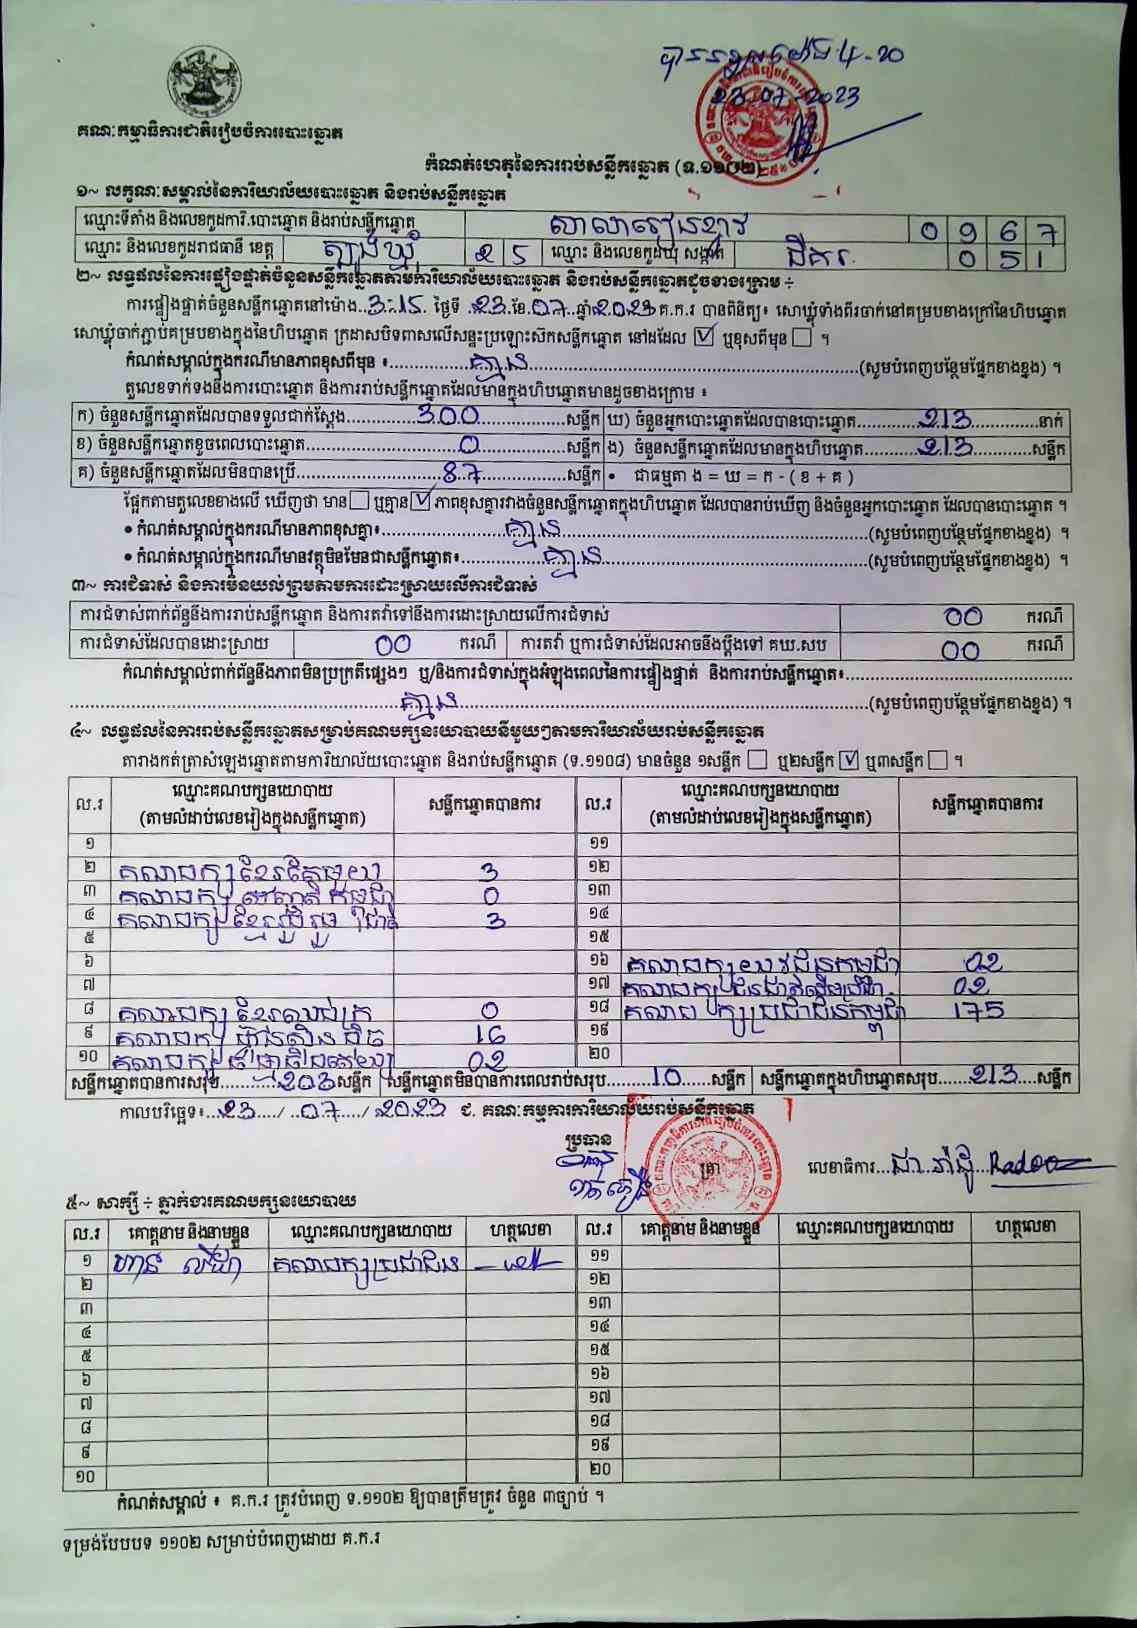 បានទទួលម៉ោង 4-20
23-07-2023
គណៈកម្មាធិការជាតិរៀបចំការបោះឆ្នោត
កំណត់ហេតុនៃការរាប់សន្លឹកឆ្នោត (ទ.១១០២)
១~ លក្ខណៈសម្គាល់នៃការិយាល័យបោះឆ្នោត និងរាប់សន្លឹកឆ្នោត
ឈ្មោះទីតាំង និងលេខកូដការិ.បោះឆ្នោត និងរាប់សន្លឹកឆ្នោត សាលារៀនខ្នាវ 0 9 6 7
ឈ្មោះ និងលេខកូដរាជធានី ខេត្ត ត្បូងឃ្មុំ 2 5 ឈ្មោះ និងលេខកូដឃុំ សង្កាត់ ជីគរ 0 5 1
២~ លទ្ធផលនៃការផ្ទៀងផ្ទាត់ចំនួនសន្លឹកឆ្នោតតាមការិយាល័យបោះឆ្នោត និងរាប់សន្លឹកឆ្នោតដូចខាងក្រោម ÷
ការផ្ទៀងផ្ទាត់ចំនួនសន្លឹកឆ្នោតនៅម៉ោង..3:15. ថ្ងៃទី .23.ខែ.07..ឆ្នាំ.2023.គ.ក.រ បានពិនិត្យ៖ សោឃ្មុំទាំងពីរចាក់នៅគម្របខាងក្រៅនៃហិបឆ្នោត
សោឃ្មុំចាក់ភ្ជាប់គម្របខាងក្នុងនៃហិបឆ្នោត ក្រដាសបិទពាសលើសន្ទះប្រឡោះស៊កសន្លឹកឆ្នោត នៅដដែល ☑ ឬខុសពីមុន ☐ ។
កំណត់សម្គាល់ក្នុងករណីមានភាពខុសពីមុន ៖ គ្មាន (សូមបំពេញបន្ថែមផ្នែកខាងខ្នង) ។
តួលេខទាក់ទងនឹងការបោះឆ្នោត និងការរាប់សន្លឹកឆ្នោតដែលមានក្នុងហិបឆ្នោតមានដូចខាងក្រោម ៖
ក) ចំនួនសន្លឹកឆ្នោតដែលបានទទួលជាក់ស្តែង 300 សន្លឹក ឃ) ចំនួនអ្នកបោះឆ្នោតដែលបានបោះឆ្នោត 213 នាក់
ខ) ចំនួនសន្លឹកឆ្នោតខូចពេលបោះឆ្នោត 0 សន្លឹក ង) ចំនួនសន្លឹកឆ្នោតដែលមានក្នុងហិបឆ្នោត 213 សន្លឹក
គ) ចំនួនសន្លឹកឆ្នោតដែលមិនបានប្រើ 87 សន្លឹក • ជាធម្មតា ង = ឃ = ក - ( ខ + គ )
ផ្អែកតាមតួលេខខាងលើ ឃើញថា មាន ☐ ឬគ្មាន ☑ ភាពខុសគ្នារវាងចំនួនសន្លឹកឆ្នោតក្នុងហិបឆ្នោត ដែលបានរាប់ឃើញ និងចំនួនអ្នកបោះឆ្នោត ដែលបានបោះឆ្នោត ។
• កំណត់សម្គាល់ក្នុងករណីមានភាពខុសគ្នា៖ គ្មាន (សូមបំពេញបន្ថែមផ្នែកខាងខ្នង) ។
• កំណត់សម្គាល់ក្នុងករណីមានវត្ថុមិនមែនជាសន្លឹកឆ្នោត៖ គ្មាន (សូមបំពេញបន្ថែមផ្នែកខាងខ្នង) ។
៣~ ការជំទាស់ និងការមិនយល់ព្រមតាមការដោះស្រាយលើការជំទាស់
ការជំទាស់ពាក់ព័ន្ធនឹងការរាប់សន្លឹកឆ្នោត និងការតវ៉ាទៅនឹងការដោះស្រាយលើការជំទាស់ 00 ករណី
ការជំទាស់ដែលបានដោះស្រាយ 00 ករណី ការតវ៉ា ឬការជំទាស់ដែលអាចនឹងប្តឹងទៅ គឃ.សប 00 ករណី
កំណត់សម្គាល់ពាក់ព័ន្ធនឹងភាពមិនប្រក្រតីផ្សេងៗ ឬ/និងការជំទាស់ក្នុងអំឡុងពេលនៃការផ្ទៀងផ្ទាត់ និងការរាប់សន្លឹកឆ្នោត៖
គ្មាន (សូមបំពេញបន្ថែមផ្នែកខាងខ្នង) ។
៤~ លទ្ធផលនៃការរាប់សន្លឹកឆ្នោតសម្រាប់គណបក្សនយោបាយនីមួយៗតាមការិយាល័យរាប់សន្លឹកឆ្នោត
តារាងកត់ត្រាសំឡេងឆ្នោតតាមការិយាល័យបោះឆ្នោត និងរាប់សន្លឹកឆ្នោត (ទ.១១០៨) មានចំនួន ១សន្លឹក ☐ ឬ២សន្លឹក ☑ ឬ៣សន្លឹក ☐ ។
ល.រ ឈ្មោះគណបក្សនយោបាយ (តាមលំដាប់លេខរៀងក្នុងសន្លឹកឆ្នោត) សន្លឹកឆ្នោតបានការ ល.រ ឈ្មោះគណបក្សនយោបាយ (តាមលំដាប់លេខរៀងក្នុងសន្លឹកឆ្នោត) សន្លឹកឆ្នោតបានការ
១ ១១
២ គណបក្ស ខ្មែរតែមួយ 3 ១២
៣ គណបក្ស សញ្ជាតិ កម្ពុជា 0 ១៣
៤ គណបក្ស ខ្មែររួបរួម ជាតិ 3 ១៤
៥ ១៥
៦ ១៦ គណបក្ស យុវជនកម្ពុជា 02
៧ ១៧ គណបក្ស ជនជាតិដើម 02
៨ គណបក្ស ខ្មែរ 0 ១៨ គណបក្សប្រជាជនកម្ពុជា 175
៩ គណបក្ស ហ៊្វុនស៊ិនប៉ិច 16 ១៩
១០ គណបក្ស 02 ២០
សន្លឹកឆ្នោតបានការសរុប 203 សន្លឹក សន្លឹកឆ្នោតមិនបានការពេលរាប់សរុប 10 សន្លឹក សន្លឹកឆ្នោតក្នុងហិបឆ្នោតសរុប 213 សន្លឹក
កាលបរិច្ឆេទ៖ 23 / 07 / 2023 ជ. គណៈកម្មការការិយាល័យរាប់សន្លឹកឆ្នោត
ប្រធាន
ត្រា លេខាធិការ
៥~ សាក្សី ÷ ភ្នាក់ងារគណបក្សនយោបាយ
ល.រ គោត្តនាម និងនាមខ្លួន ឈ្មោះគណបក្សនយោបាយ ហត្ថលេខា ល.រ គោត្តនាម និងនាមខ្លួន ឈ្មោះគណបក្សនយោបាយ ហត្ថលេខា
១ ហាន លីដា គណបក្សប្រជាជន ១១
២ ១២
៣ ១៣
៤ ១៤
៥ ១៥
៦ ១៦
៧ ១៧
៨ ១៨
៩ ១៩
១០ ២០
កំណត់សម្គាល់ ៖ គ.ក.រ ត្រូវបំពេញ ទ.១១០២ ឱ្យបានត្រឹមត្រូវ ចំនួន ៣ច្បាប់ ។
ទម្រង់បែបបទ ១១០២ សម្រាប់បំពេញដោយ គ.ក.រ